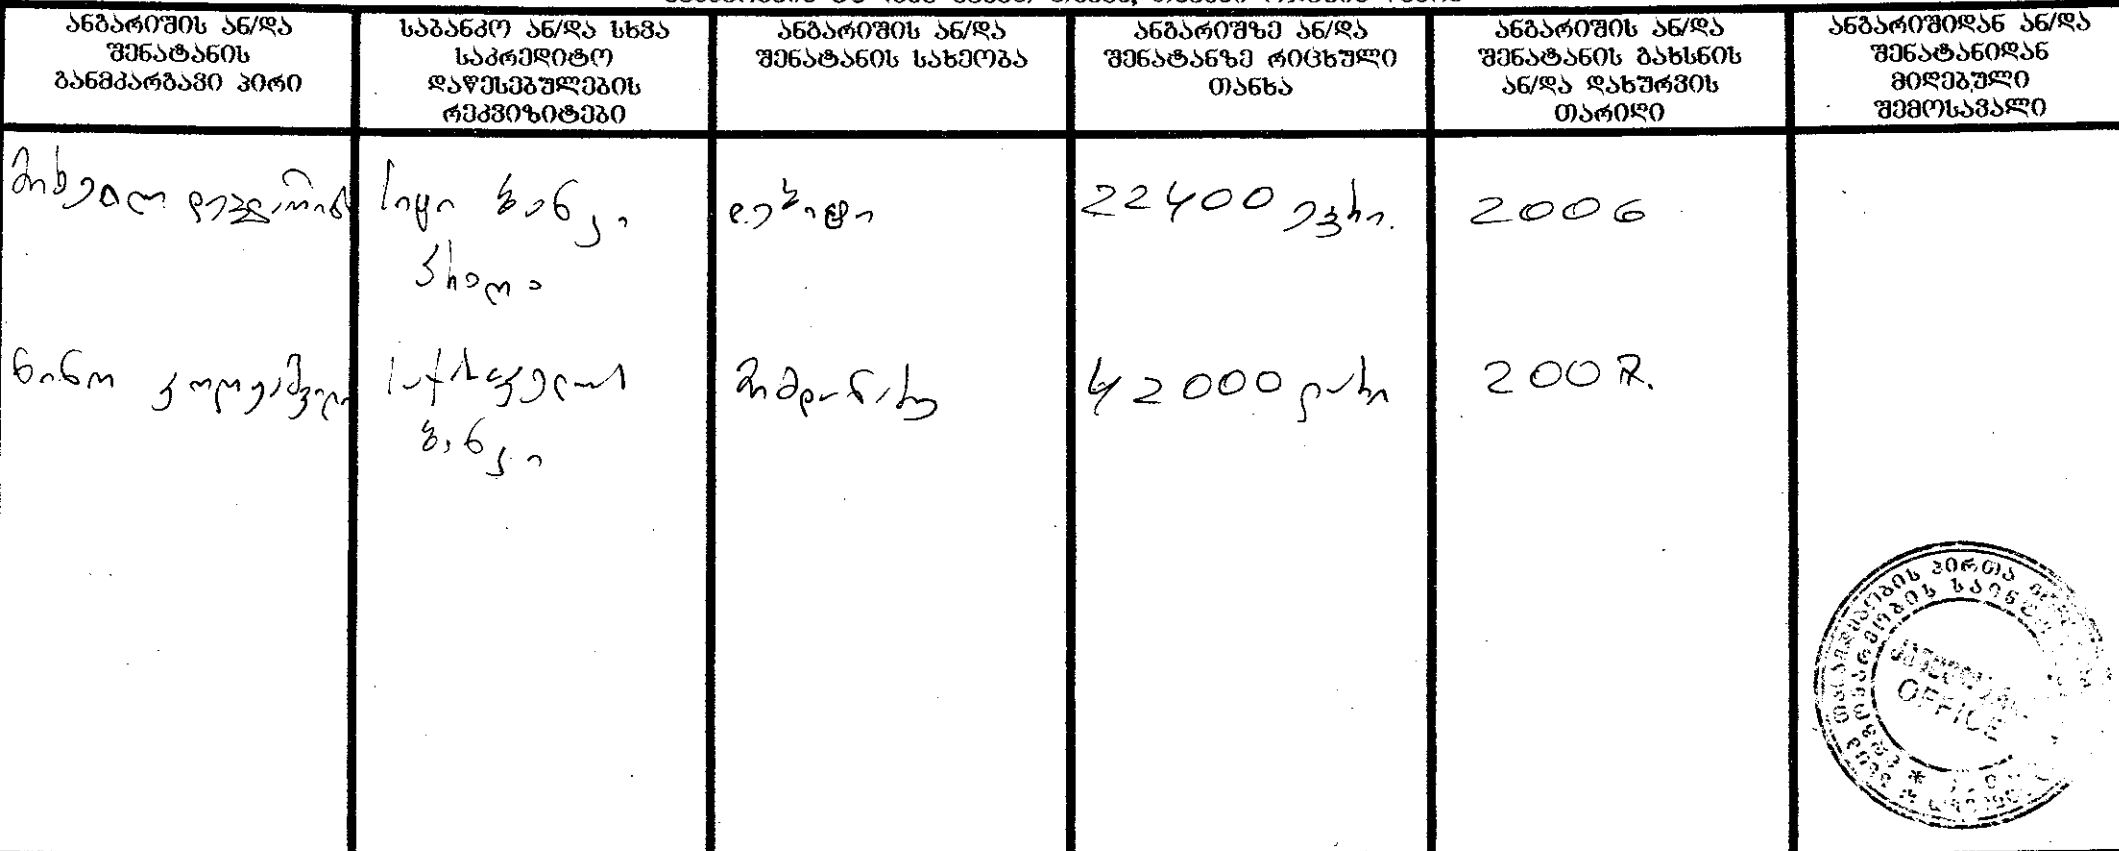 ანგარიშის ან/და
შენატანის
განმკარგავი პირი
საბანკო ან/და სხვა
საკრედიტო
დაწესებულების
რეკვიზიტები
ანგარიშის ან/და
შენატანის სახეობა
ანგარიშზე ან/და
შენატანზე რიცხული
თანხა
ანგარიშის ან/და
შენატანის გახსნის
ან/და დახურვის
თარიღი
ანგარიშიდან ან/და
შენატანიდან
მიღებული
შემოსავალი
მიხეილ
სიტი ბანკი
დებიტი
22400 ევრო.
2006
პრაღა
ნინო
საქართველოს
ბანკი
მიმდინარე
42000 ლარი
2007.
პირთა
OFFICE